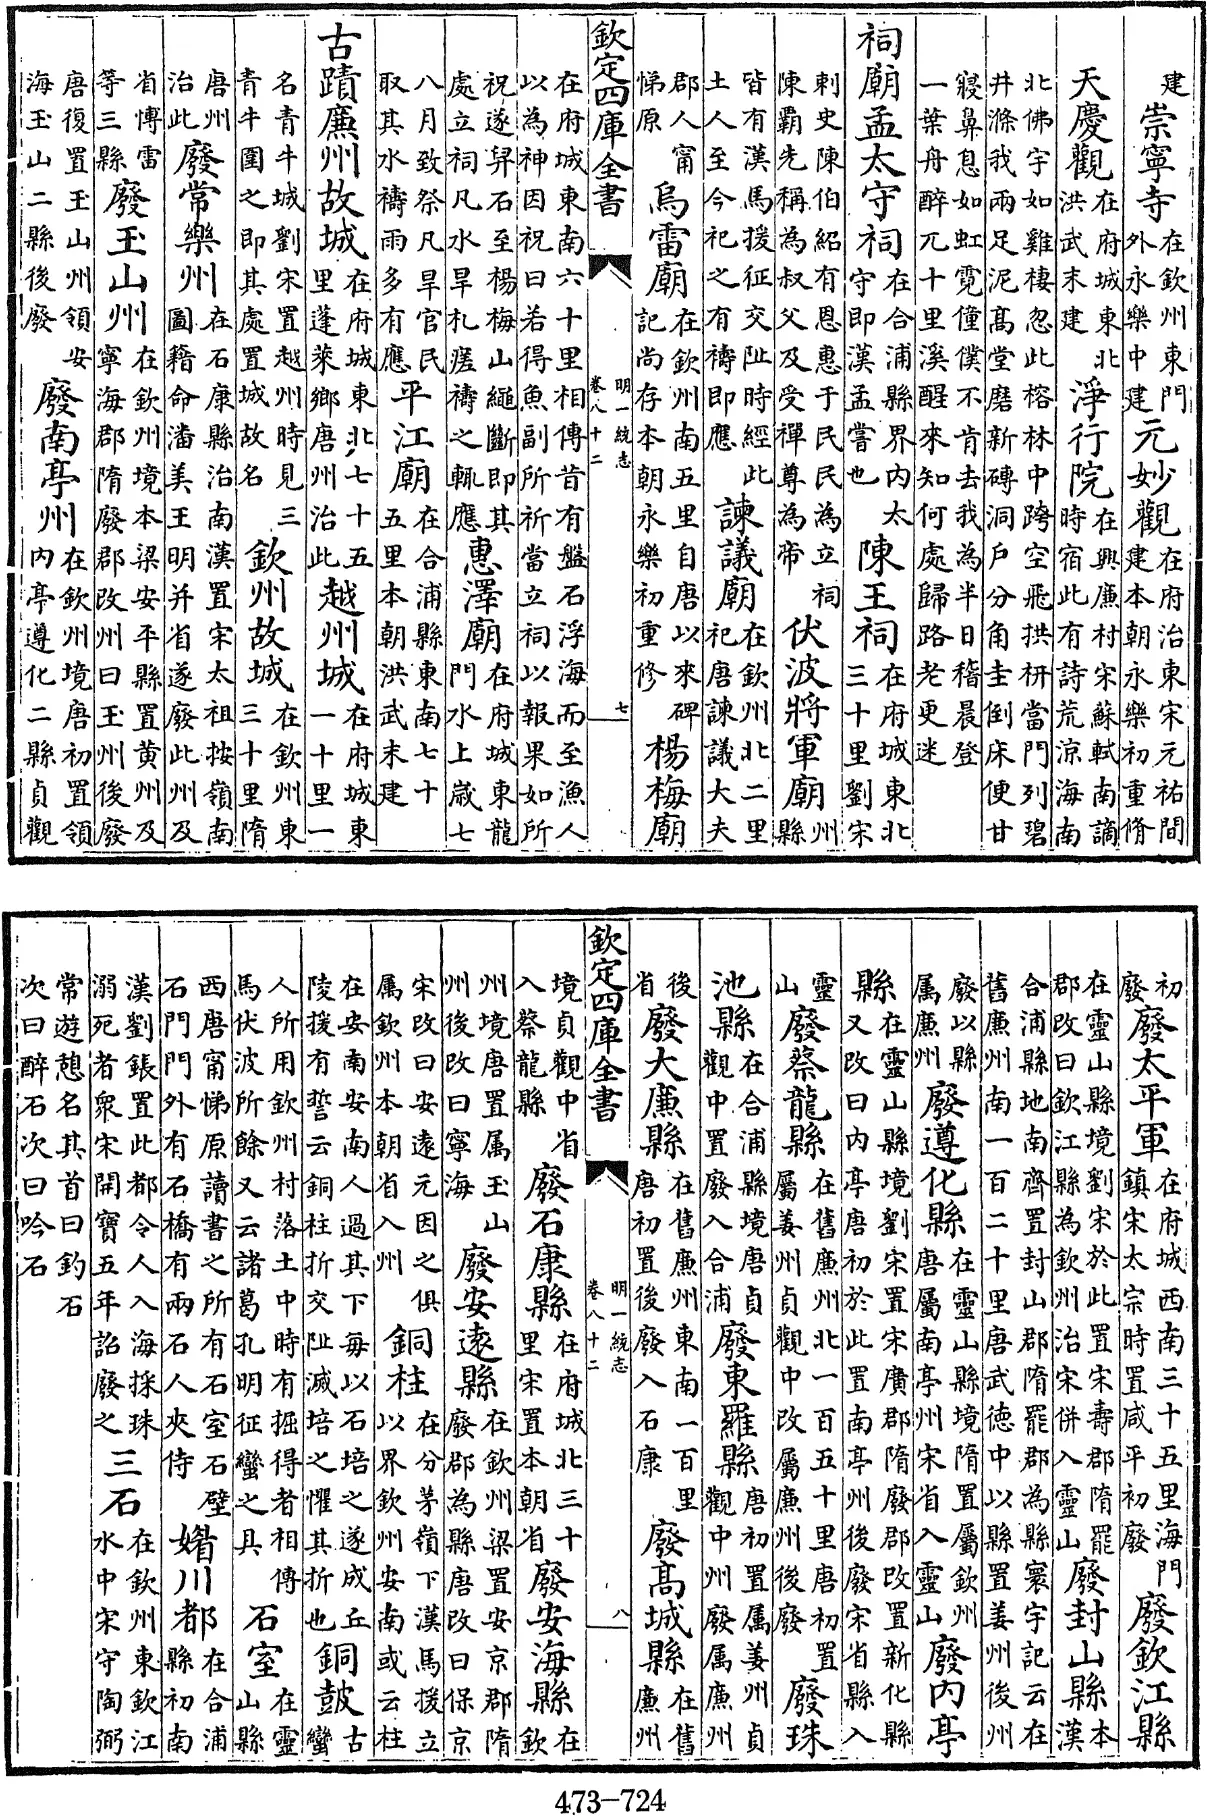 建崇寧寺在欽州東門外永樂中建元妙觀在府治東宋元祐間建本朝永樂初重脩
天慶觀在府城東北洪武末建淨行院在興廉村宋蘇軾南謫時宿此有詩荒涼海南
北佛宇如雞棲忽此榕林中跨空飛拱枅當門列碧井滌我兩足泥髙堂磨新磚洞戶分角圭倒床便甘
寢鼻息如虹霓僮僕不肯去我為半日稽晨登一葉舟醉兀十里溪醒來知何處歸路老更迷
祠廟孟太守祠在合浦縣界内太守即漢孟嘗也陳王祠在府城東北三十里劉宋
刺史陳伯紹有恩惠于民民為立祠陳霸先稱為叔父及受禪尊為帝伏波將軍廟州縣
皆有漢馬援征交阯時經此土人至今祀之有禱即應諫議廟在欽州北二里祀唐諫議大夫
郡人甯悌原烏雷廟在欽州南五里自唐以來碑記尚存本朝永樂初重修楊梅廟
欽定四庫全書 明一統志 卷八十二 七
在府城東南六十里相傳昔有盤石浮海而至漁人以為神因祝曰若得魚副所祈當立祠以報果如所
祝遂舁石至楊梅山繩斷即其處立祠凡水旱札瘥禱之輒應惠澤廟在府城東龍門水上嵗七
八月致祭凡旱官民取其水禱雨多有應平江廟在合浦縣東南七十五里本朝洪武末建
古蹟廉州故城在府城東北七十五里蓬萊鄉唐州治此越州城在府城東一十里一
名青牛城劉宋置越州時見三青牛圍之即其處置城故名欽州故城在欽州東三十里隋
唐州治此廢常樂州在石康縣治南漢置宋太祖按嶺南圖籍命潘美王明并省遂廢此州及
省慱雷等三縣廢玉山州在欽州境本梁安平縣置黄州及寧海郡隋廢郡改州曰玉州後廢
唐復置玉山州領安海玉山二縣後廢廢南亭州在欽州境唐初置領内亭遵化二縣貞觀
初廢廢太平軍在府城西南三十五里海門鎮宋太宗時置咸平初廢廢欽江縣
在靈山縣境劉宋於此置宋壽郡隋罷郡改曰欽江縣為欽州治宋併入靈山廢封山縣本漢
合浦縣地南齊置封山郡隋罷郡為縣寰宇記云在舊廉州南一百二十里唐武德中以縣置姜州後州
廢以縣属廉州廢遵化縣在靈山縣境隋置屬欽州唐屬南亭州宋省入靈山廢内亭
縣在靈山縣境劉宋置宋廣郡隋廢郡改置新化縣又改曰内亭唐初於此置南亭州後廢宋省縣入
靈山廢蔡龍縣在舊廉州北一百五十里唐初置屬姜州貞觀中改屬廉州後廢廢珠
池縣在合浦縣境唐貞觀中置廢入合浦廢東羅縣唐初置属姜州貞觀中州廢属廉州
後省廢大廉縣在舊廉州東南一百里唐初置後廢入石康廢髙城縣在舊廉州
欽定四庫全書 明一統志 卷八十二 八
境貞觀中省入蔡龍縣廢石康縣在府城北三十里宋置本朝省廢安海縣在欽
州境唐置属玉山州後改曰寧海廢安遠縣在欽州梁置安京郡隋廢郡為縣唐改曰保京
宋改曰安遠元因之俱属欽州本朝省入州銅柱在分茅嶺下漢馬援立以界欽州安南或云柱
在安南安南人過其下每以石培之遂成丘陵援有誓云銅柱折交阯滅培之懼其折也銅鼓古蠻
人所用欽州村落土中時有掘得者相傳馬伏波所餘又云諸葛孔明征蠻之具石室在靈山縣
西唐甯悌原讀書之所有石室石壁石門門外有石橋有兩石人夾侍媚川都在合浦縣初南
漢劉鋹置此都令人入海採珠溺死者衆宋開寶五年詔廢之三石在欽州東欽江水中宋守陶弼
常遊憩名其首曰釣石次曰醉石次曰吟石
473-724